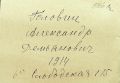 Головин
Александр
Демьянович
1914
Слободская 115